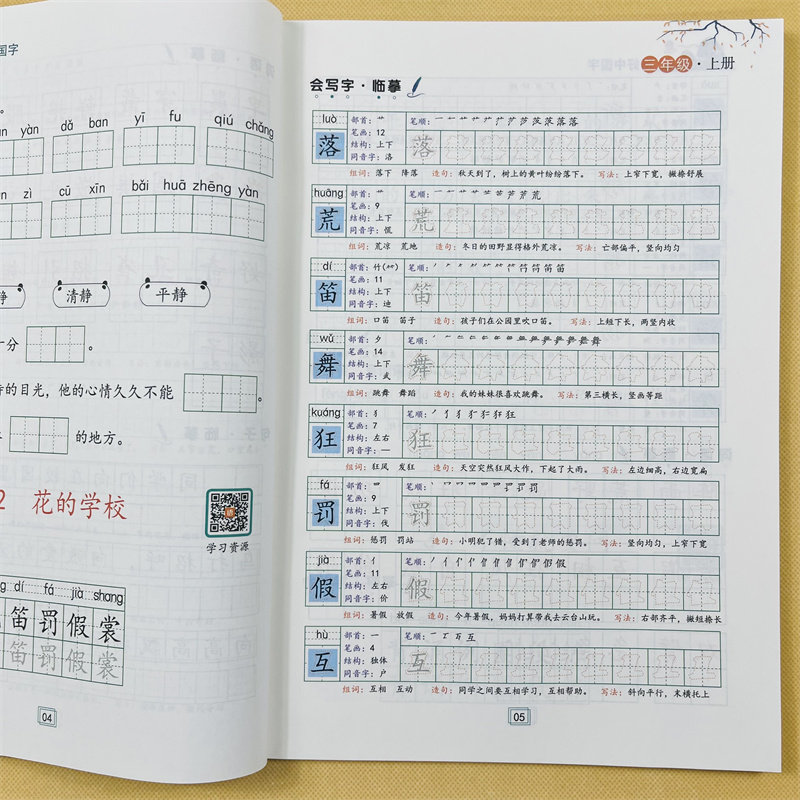 国字
yàn dǎ ban yī fu qiú chǎng
zì cū xīn bǎi huā zhēng yàn
静 清静 平静
十分 。
的目光，他的心情久久不能
的地方。
2 花的学校
学习资源
dí fá jià shang
笛罚假裳
笛罚假裳
04
三年级·上册
会写字·临摹
luò 部首：艹 笔顺：
落 笔画：12 落
结构：上下
同音字：洛
组词：落下 降落 造句：秋天到了，树上的黄叶纷纷落下。 写法：上窄下宽，撇捺舒展
huāng 部首：艹 笔顺：
荒 笔画：9 荒
结构：上下
同音字：慌
组词：荒凉 荒地 造句：冬日的田野显得格外荒凉。 写法：亡部偏平，竖向均匀
dí 部首：竹(⺮) 笔顺：
笛 笔画：11 笛
结构：上下
同音字：迪
组词：口笛 笛子 造句：孩子们在公园里吹口笛。 写法：上短下长，两竖内收
wǔ 部首：夕 笔顺：
舞 笔画：14 舞
结构：上下
同音字：武
组词：跳舞 舞蹈 造句：我的妹妹很喜欢跳舞。 写法：第三横长，竖画等距
kuáng 部首：犭 笔顺：
狂 笔画：7 狂
结构：左右
同音字：—
组词：狂风 发狂 造句：天空突然狂风大作，下起了大雨。 写法：左边细高，右边宽扁
fá 部首：罒 笔顺：
罚 笔画：9 罚
结构：上下
同音字：伐
组词：惩罚 罚站 造句：小明犯了错，受到了老师的惩罚。 写法：竖向均匀，上窄下宽
jià 部首：亻 笔顺：
假 笔画：11 假
结构：左右
同音字：价
组词：暑假 放假 造句：今年暑假，妈妈打算带我去云台山玩。 写法：右部齐平，撇短捺长
hù 部首：一 笔顺：
互 笔画：4 互
结构：独体
同音字：户
组词：互相 互动 造句：同学之间要互相学习，互相帮助。 写法：斜向平行，末横托上
05